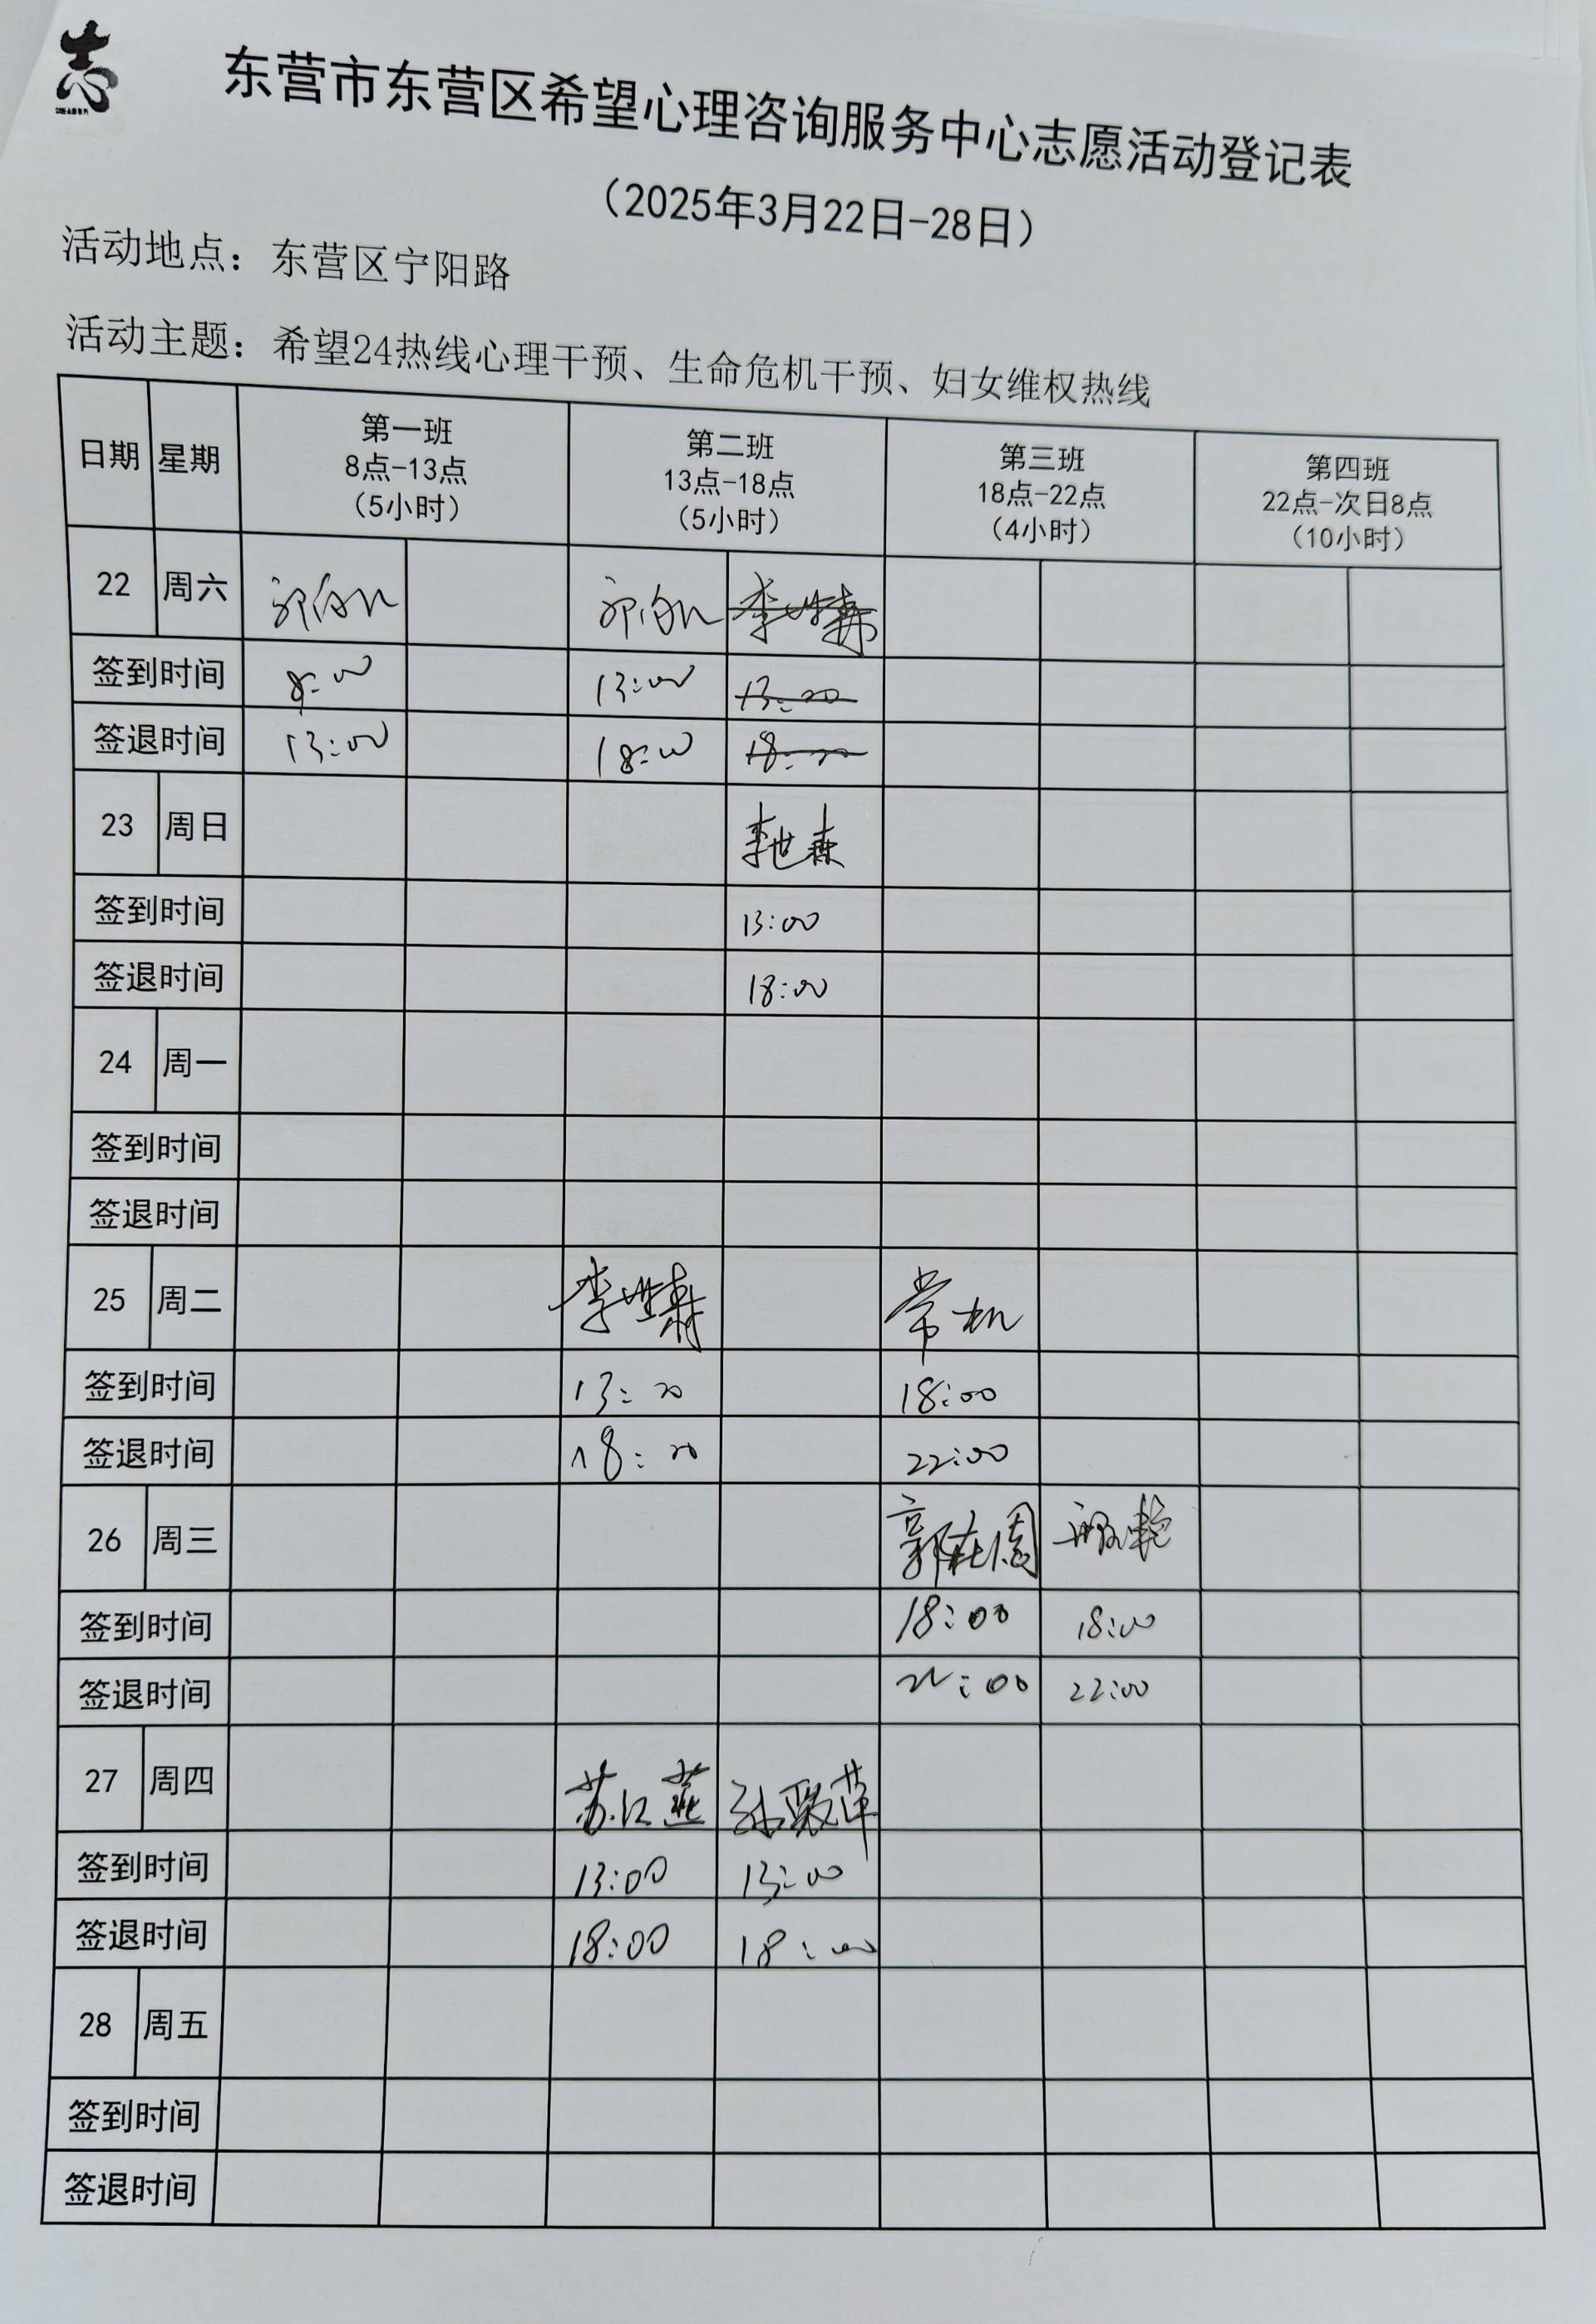 志
东营市东营区希望心理咨询服务中心志愿活动登记表
（2025年3月22日-28日）
活动地点：东营区宁阳路
活动主题：希望24热线心理干预、生命危机干预、妇女维权热线
日期 星期 第一班 8点-13点 （5小时） 第二班 13点-18点 （5小时） 第三班 18点-22点 （4小时） 第四班 22点-次日8点 （10小时）
22 周六
签到时间 8:00 13:00
签退时间 13:00 18:00 18:00
23 周日 李世森
签到时间 13:00
签退时间 18:00
24 周一
签到时间
签退时间
25 周二 常机
签到时间 13:00 18:00
签退时间 18:00 22:00
26 周三 郭在周
签到时间 18:00 18:00
签退时间 22:00 22:00
27 周四 苏江燕
签到时间 13:00 13:00
签退时间 18:00 18:00
28 周五
签到时间
签退时间